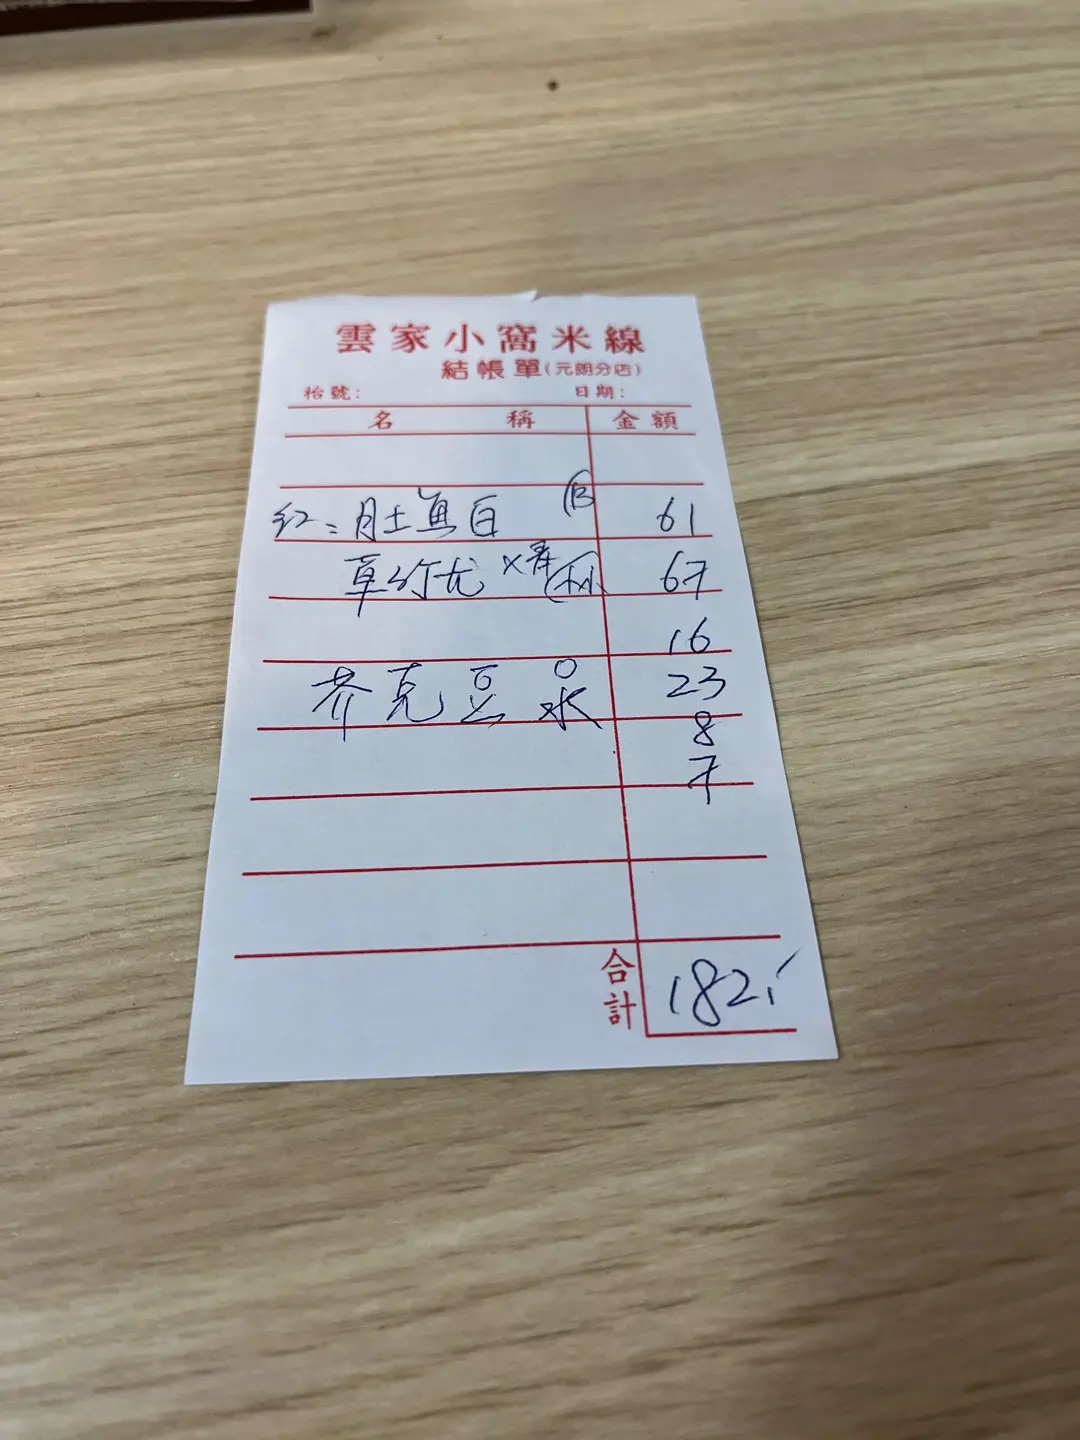 雲家小窩米線
結帳單(元朗分店)
枱號: 日期:
名稱 金額
红: 月土魚白 B 61
草竹尤 x青 小 67
16
芥克豆 水 23
8
7
合計 182